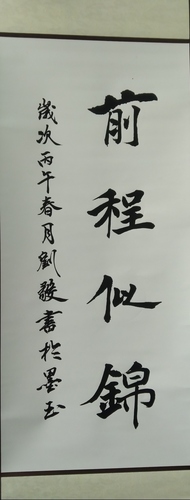 前程似錦
歲次丙午春月劉發書於墨玉